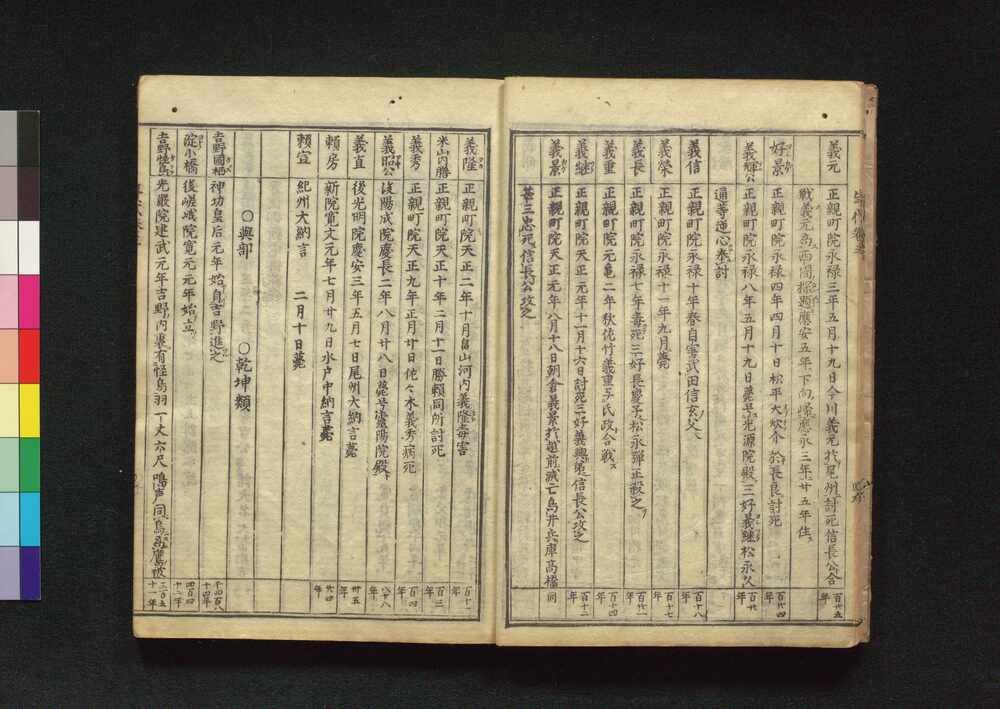 義元 正親町院永禄三年五月十九日今川義元於尾州討死信長公合 百廿五年
戦義元高西關探題應安五年下向應永三年廿五年住
好景 正親町院永禄四年四月十日松平大炊介於長良討死 百廿四年
義輝公 正親町院永禄八年五月十九日薨号光源院殿三好義継松永久 百廿年
通等逆心奉討
義信 正親町院永禄十年春自害武田信玄父 百十八年
義榮 正親町院永禄十一年九月薨 百十七年
義長 正親町院永禄七年毒死三好長慶子松永彈正殺之 百廿一年
義重 正親町院元亀二年秋佐竹義重ト氏政合戦 百十四年
義継 正親町院天正元年十一月十六日討死三好義興弟信長公攻之 百十二年
義景 正親町院天正元年八月十八日朝倉義景於越前滅亡鳥井兵庫高橋 同
甚三忠死信長公攻之
義隆 正親町院天正二年十月畠山河内義隆毒害 百十一年
米山内膳 正親町院天正十年二月十一日勝頼同所討死 百三年
義秀 正親町院天正九年正月廿日佐々木義秀病死 百四年
義昭公 後陽成院慶長二年八月廿八日薨号霊陽院殿 八十八年
義直 後光明院慶安三年五月七日尾州大納言薨 卅五年
頼房 新院寛文元年七月廿九日水戸中納言薨 廿四年
頼宣 紀州大納言 二月十日薨
〇與部 〇乾坤類
吉野國栖 神功皇后元年始自吉野進之 千四百八十四年
淀小橋 後嵯峨院寛元元年始立 四百四十二年
吉野怪鳥 光嚴院建武元年吉野内裏有怪鳥羽一丈六尺鳴声同鳥 三百五十一年